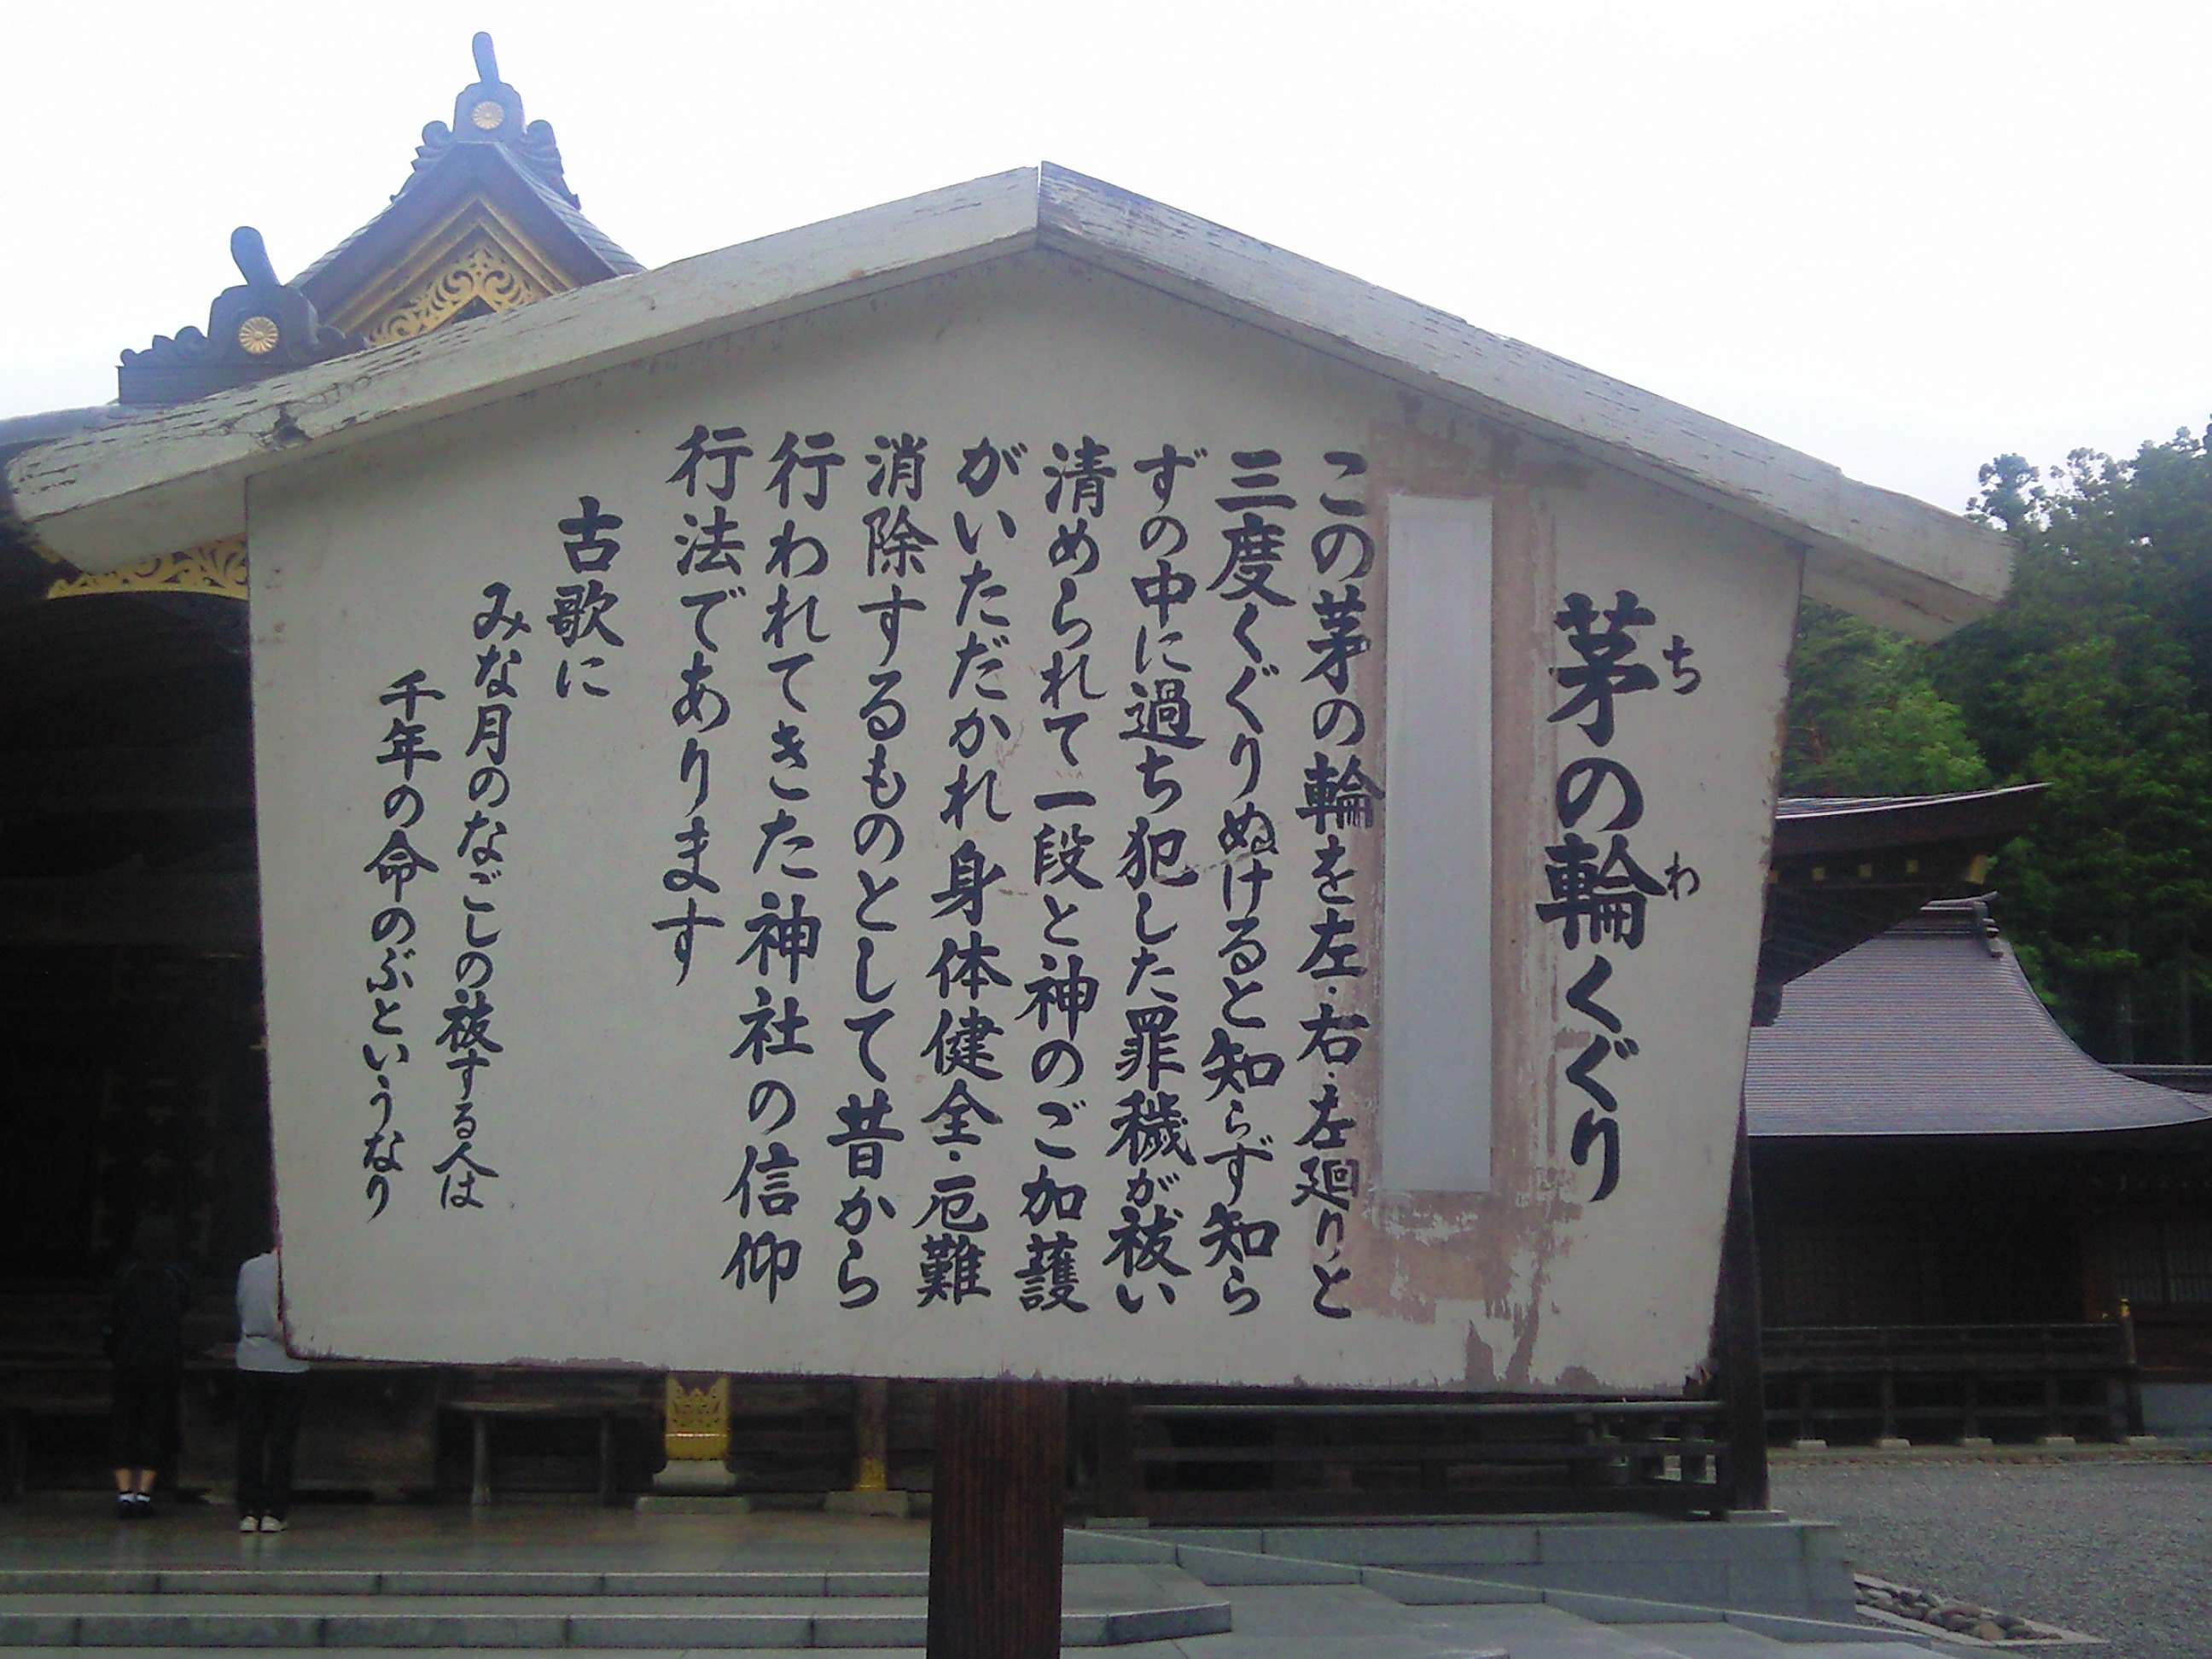 茅の輪くぐり
ち
わ
この茅の輪を左・右・左廻りと
三度くぐりぬけると知らず知ら
ずの中に過ち犯した罪穢が祓い
清められて一段と神のご加護
がいただかれ身体健全・厄難
消除するものとして昔から
行われてきた神社の信仰
行法であります
古歌に
みな月のなごしの祓する人は
千年の命のぶというなり